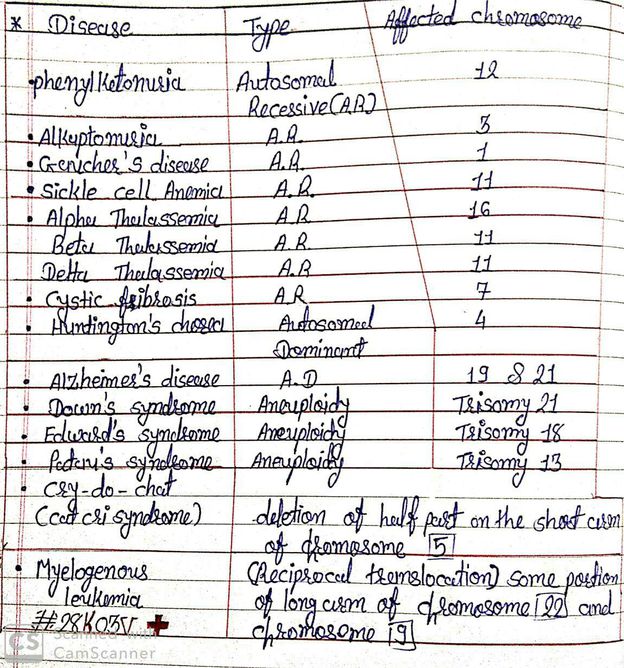 * Disease Type Affected chromosome
• phenylketonuria Autosomal 12
Recessive (A.R)
• Alkyptonuria A.R. 3
• Gaucher's disease A.R. 1
• Sickle cell Anemia A.R. 11
• Alpha Thalassemia A.R 16
Beta Thalassemia A.R. 11
Delta Thalassemia A.R 11
• Cystic fibrosis A.R 7
• Huntington's chorea Autosomal 4
Dominant
• Alzheimer's disease A.D 19 & 21
• Down's syndrome Aneuploidy Trisomy 21
• Edward's syndrome Aneuploidy Trisomy 18
• Patau's syndrome Aneuploidy Trisomy 13
• Cry-do-chat
(cat cri syndrome) deletion of half part on the short arm
of chromosome 5
• Myelogenous (Reciprocal translocation) some portion
leukemia of long arm of chromosome 22 and
chromosome 9
CS Scanned with
CamScanner